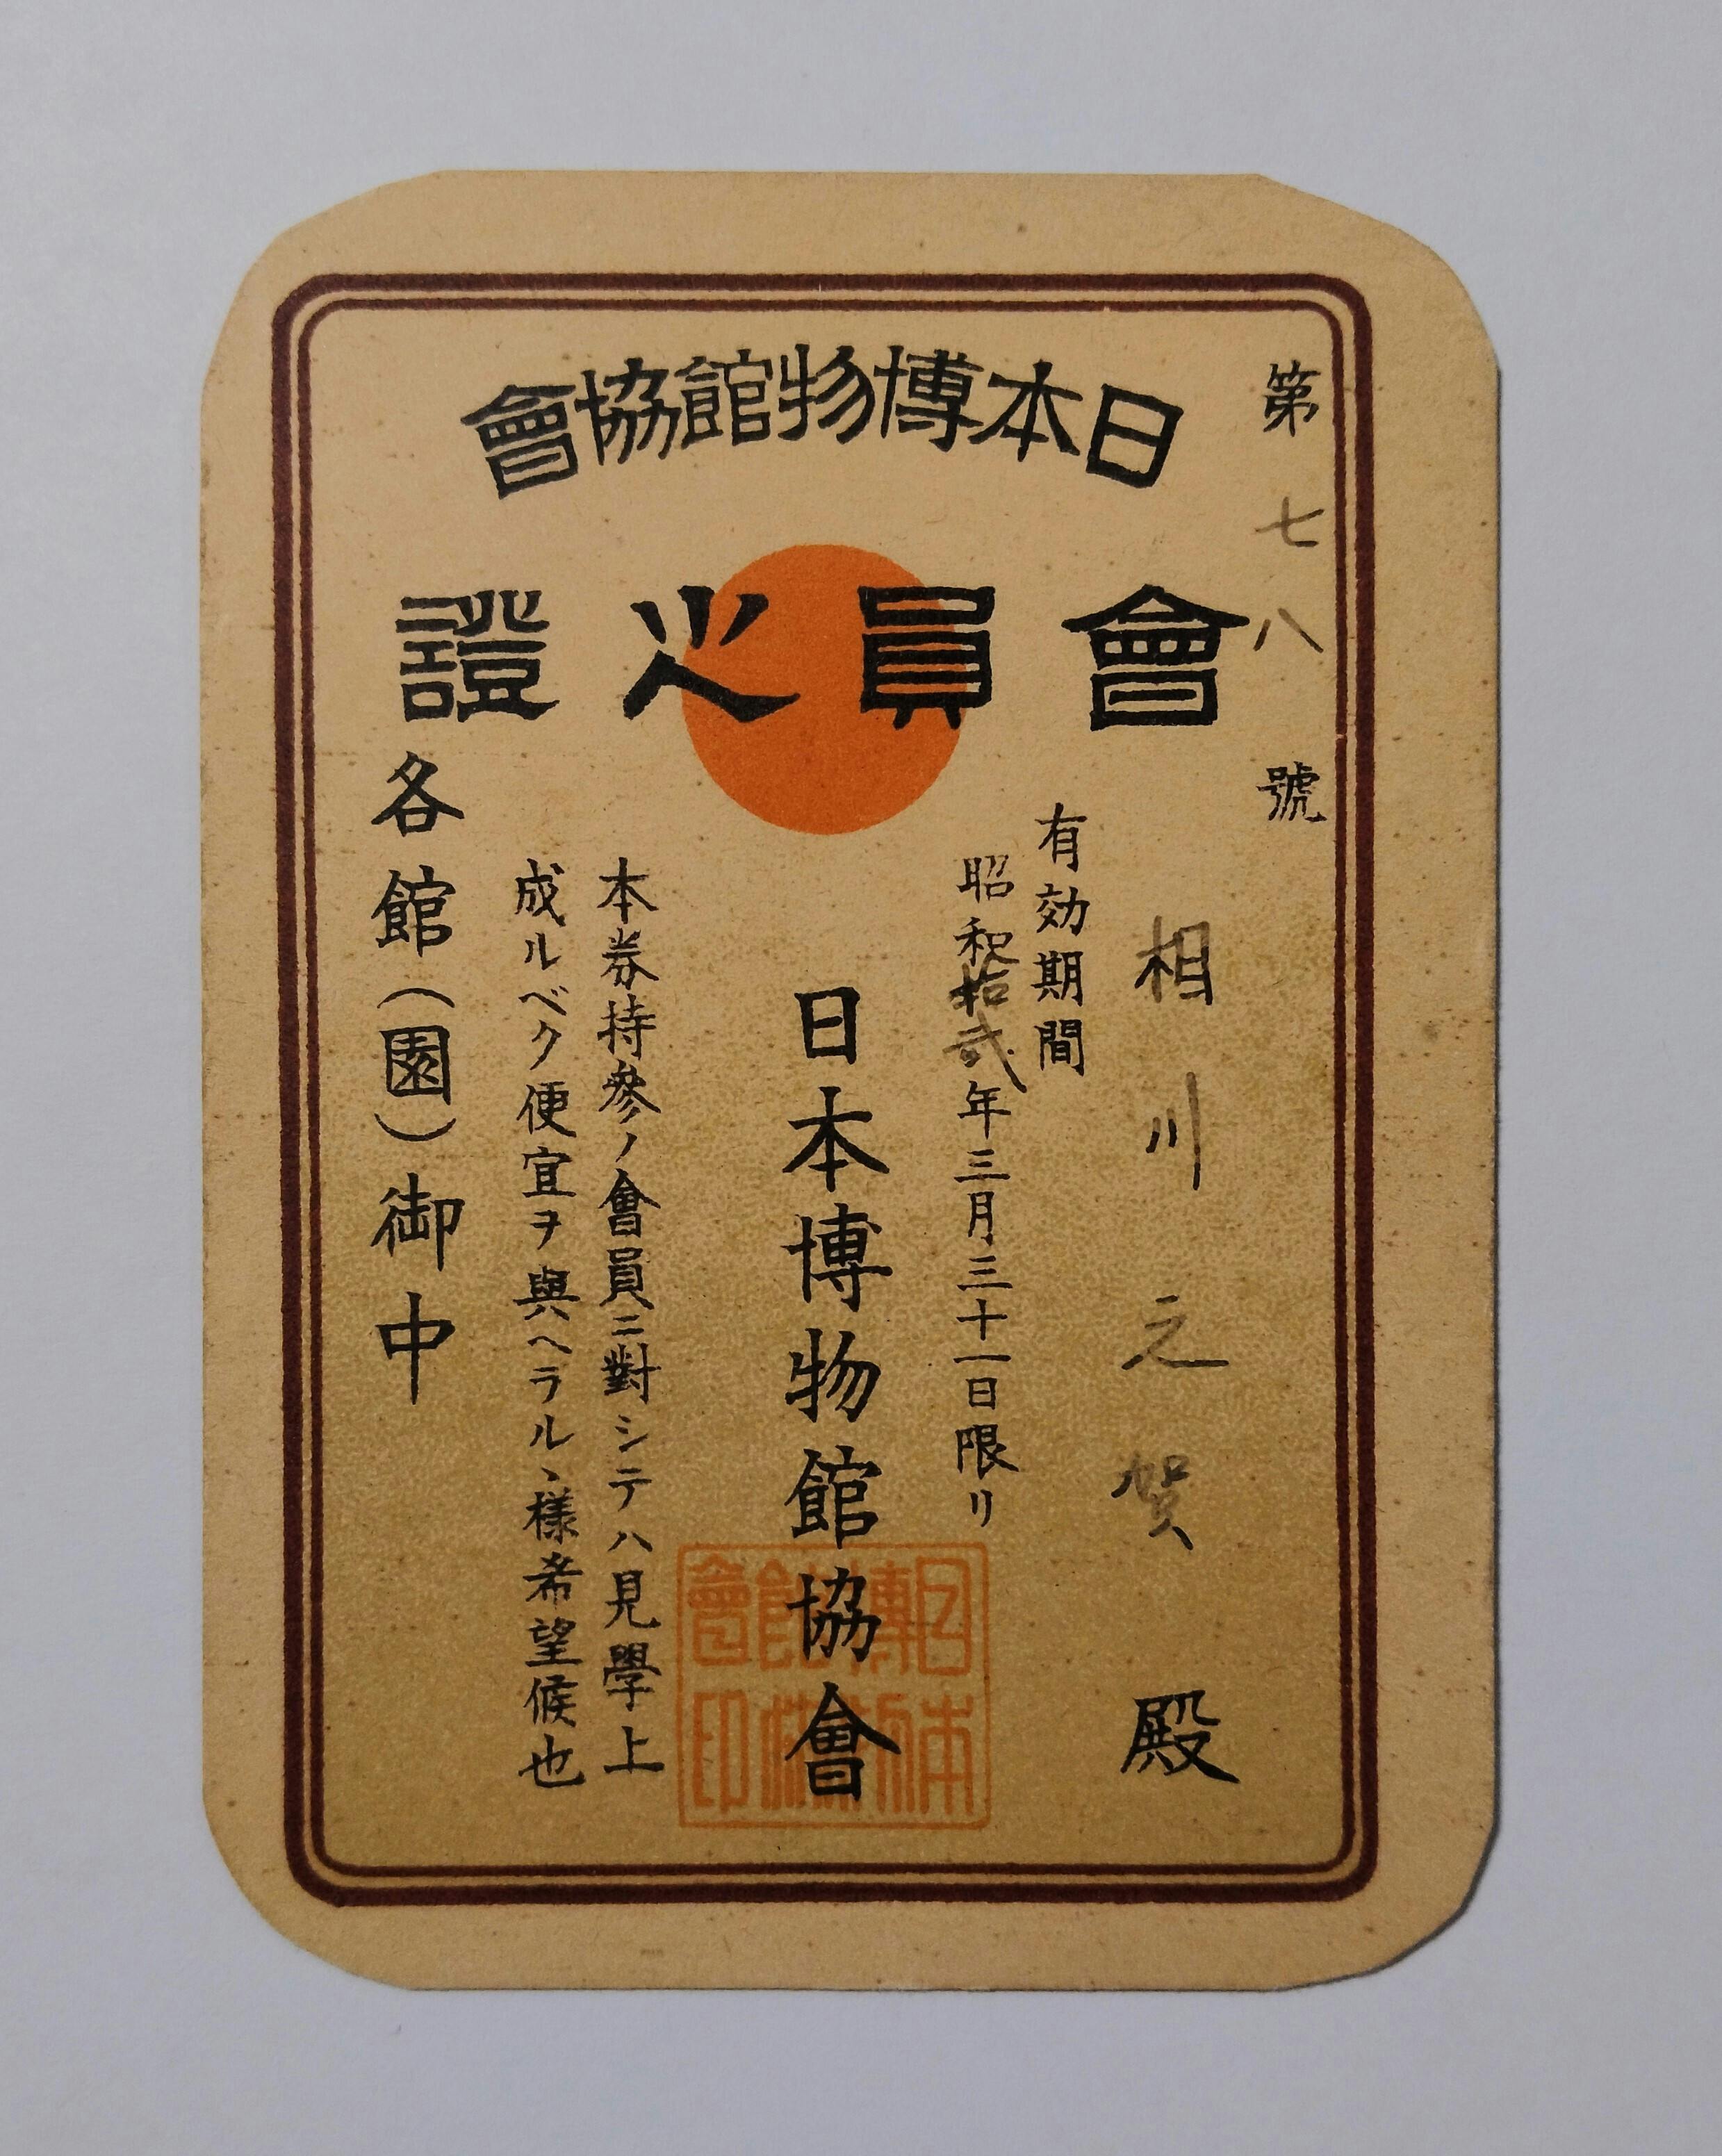 日本博物館協會
會員之證
第七八號
相川之賀殿
有効期間
昭和拾貳年三月三十一日限リ
日本博物館協會
本券持參ノ會員ニ對シテハ見學上
成ルベク便宜ヲ與ヘラルヽ様希望候也
各館(園)御中